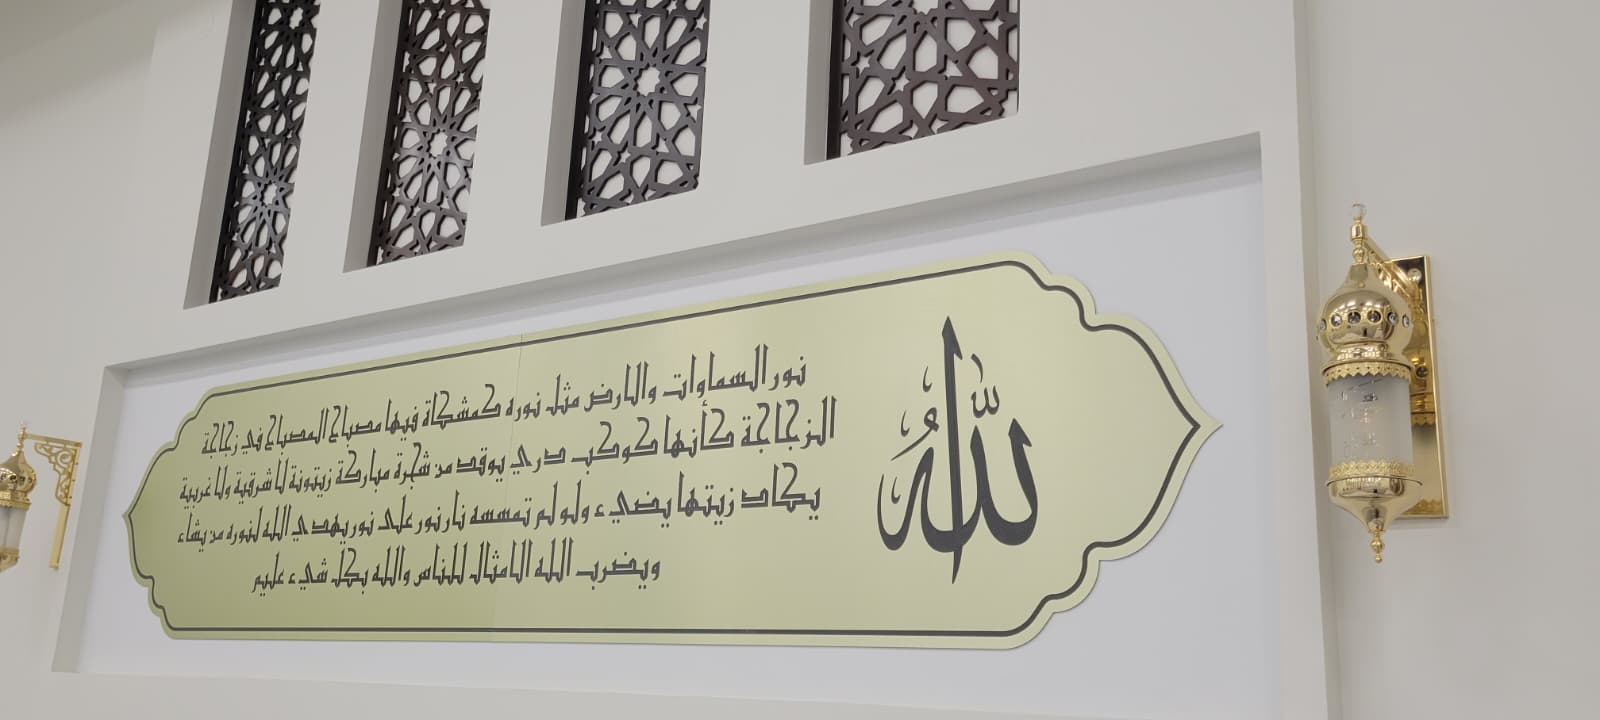 الله
نور السماوات والارض مثل نوره كمشكاة فيها مصباح المصباح في زجاجة
الزجاجة كأنها كوكب دري يوقد من شجرة مباركة زيتونة لا شرقية ولا غربية
يكاد زيتها يضيء ولو لم تمسسه نار نور على نور يهدي الله لنوره من يشاء
ويضرب الله الامثال للناس والله بكل شيء عليم